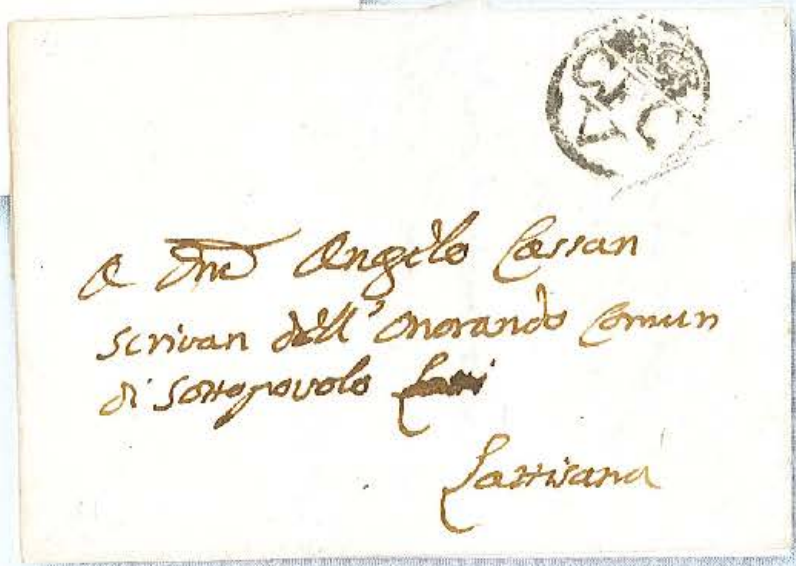 A Dne Angelo Cassan
scrivan dell' Onorando Comun
di Sottopovolo
Lattisana